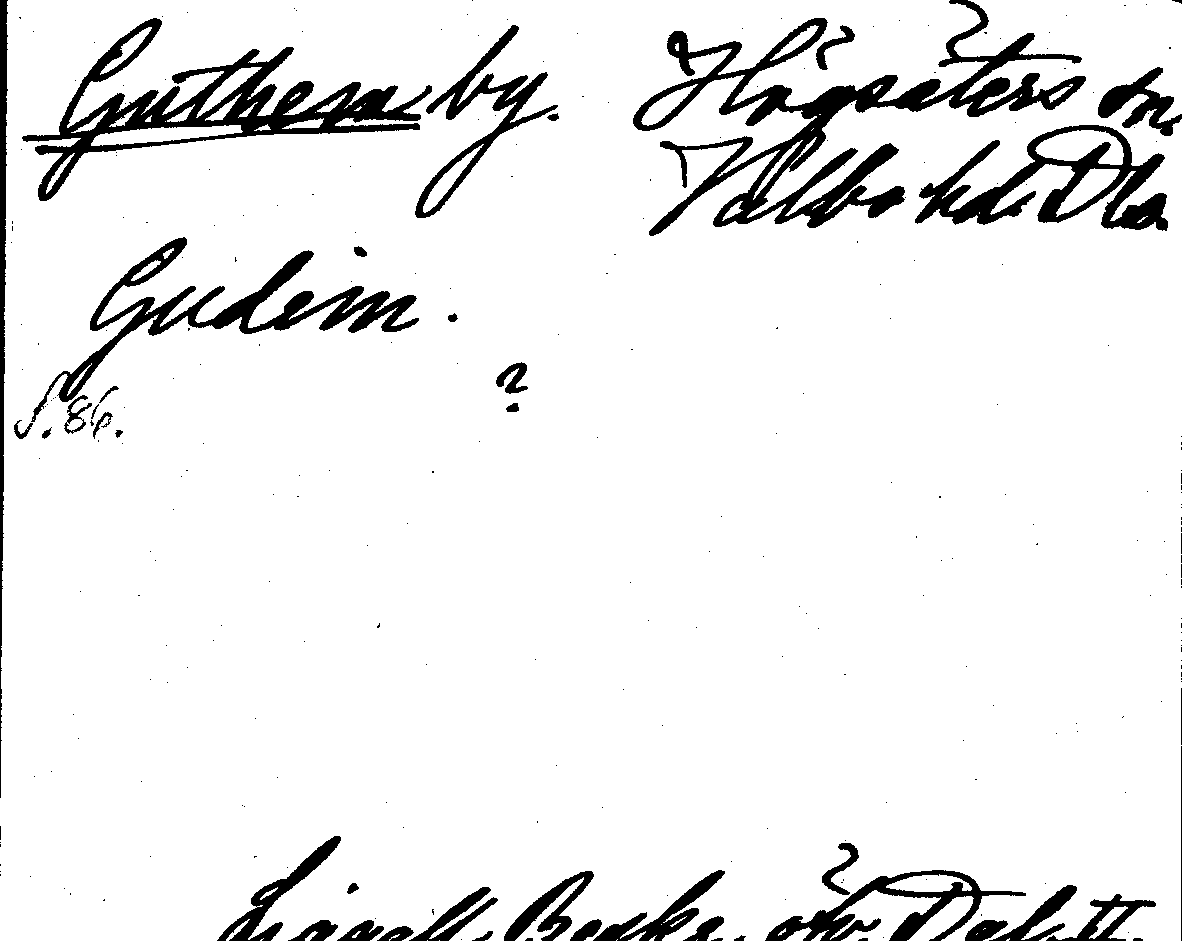 Guthem by. Högsäters sn.
Valbo hd. Dls.
Gudem.
?
S. 86.
Lignell, Beskr. öfv. Dal. II.